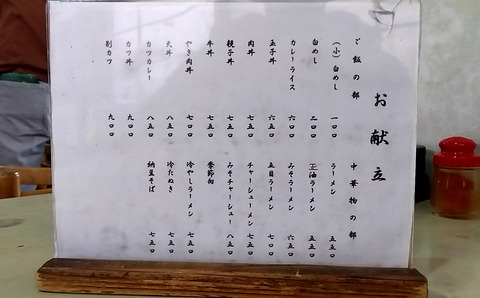 お献立
ご飯の部
(小)白めし 一〇〇
白めし 二〇〇
カレーライス 六〇〇
玉子丼 六五〇
肉丼 七五〇
親子丼 七五〇
牛丼 七五〇
やき肉丼 七〇〇
天丼 八五〇
カツカレー 八五〇
カツ丼 九〇〇
別カツ 九〇〇
中華物の部
ラーメン 五五〇
正油ラーメン 五五〇
みそラーメン 六五〇
五目ラーメン 七〇〇
チャーシューメン 七五〇
みそチャーシュー 八五〇
季節向
冷やしラーメン 七五〇
冷たぬき 七五〇
納豆そば 七五〇